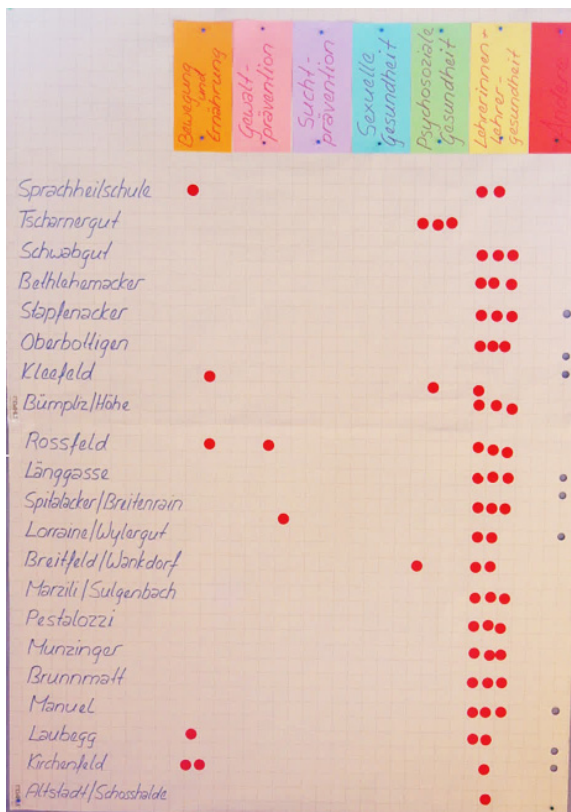 Bewegung
und
Ernährung
Gewalt-
prävention
Sucht-
prävention
Sexuelle
Gesundheit
Psychosoziale
Gesundheit
Lehrerinnen+
Lehrer-
gesundheit
Anderes
Sprachheilschule
Tscharnergut
Schwabgut
Bethlehemacker
Stapfenacker
Oberbottigen
Kleefeld
Bümpliz/Höhe
Rossfeld
Länggasse
Spitalacker/Breitenrain
Lorraine/Wylergut
Breitfeld/Wankdorf
Marzili/Sulgenbach
Pestalozzi
Munzinger
Brunnmatt
Manuel
Laubegg
Kirchenfeld
Altstadt/Schosshalde